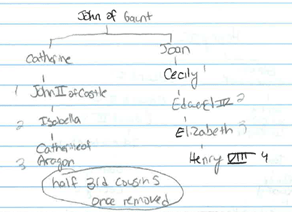 John of Gaunt
Catherine
Joan
Cecily 1
1 John II of Castle
Edward IV 2
2 Isabella
Elizabeth 3
3 Catherine of Aragon
Henry VIII 4
half 3rd cousins
once removed